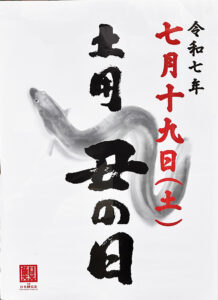 令和七年
七月十九日(土)
土用
丑の日